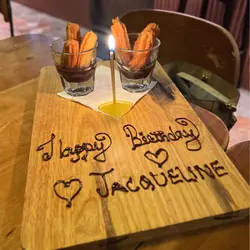 Happy Birthday
JACQUELINE